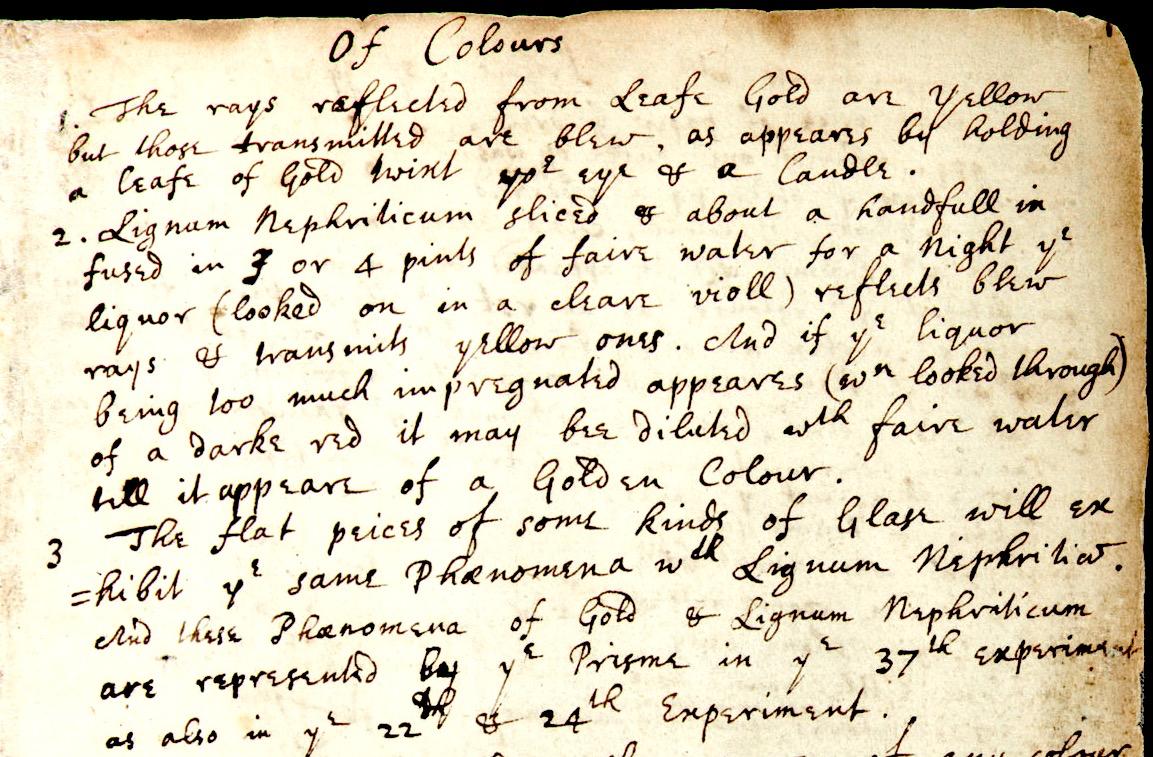 Of Colours
1. The rays reflected from Leafe Gold are Yellow
but those transmitted are blew, as appeares by holding
a leafe of Gold twixt yor eye & a Candle.
2. Lignum Nephriticum sliced & about a handfull in
fused in 3 or 4 pints of faire water for a night ye
liquor (looked on in a cleare violl) reflects blew
rays & transmits yellow ones. And if ye liquor
being too much impregnated appeares (wn looked through)
of a darke red it may bee diluted wth faire water
till it appeare of a Golden Colour.
3 The flat peices of some kinds of Glase will ex
=hibit ye same Phænomena wth Lignum Nephritic.
And these Phænomena of Gold & Lignum Nephriticum
are represented by ye Prisme in ye 37th experiment
as also in ye 22th & 24th Experiment.
of any colour